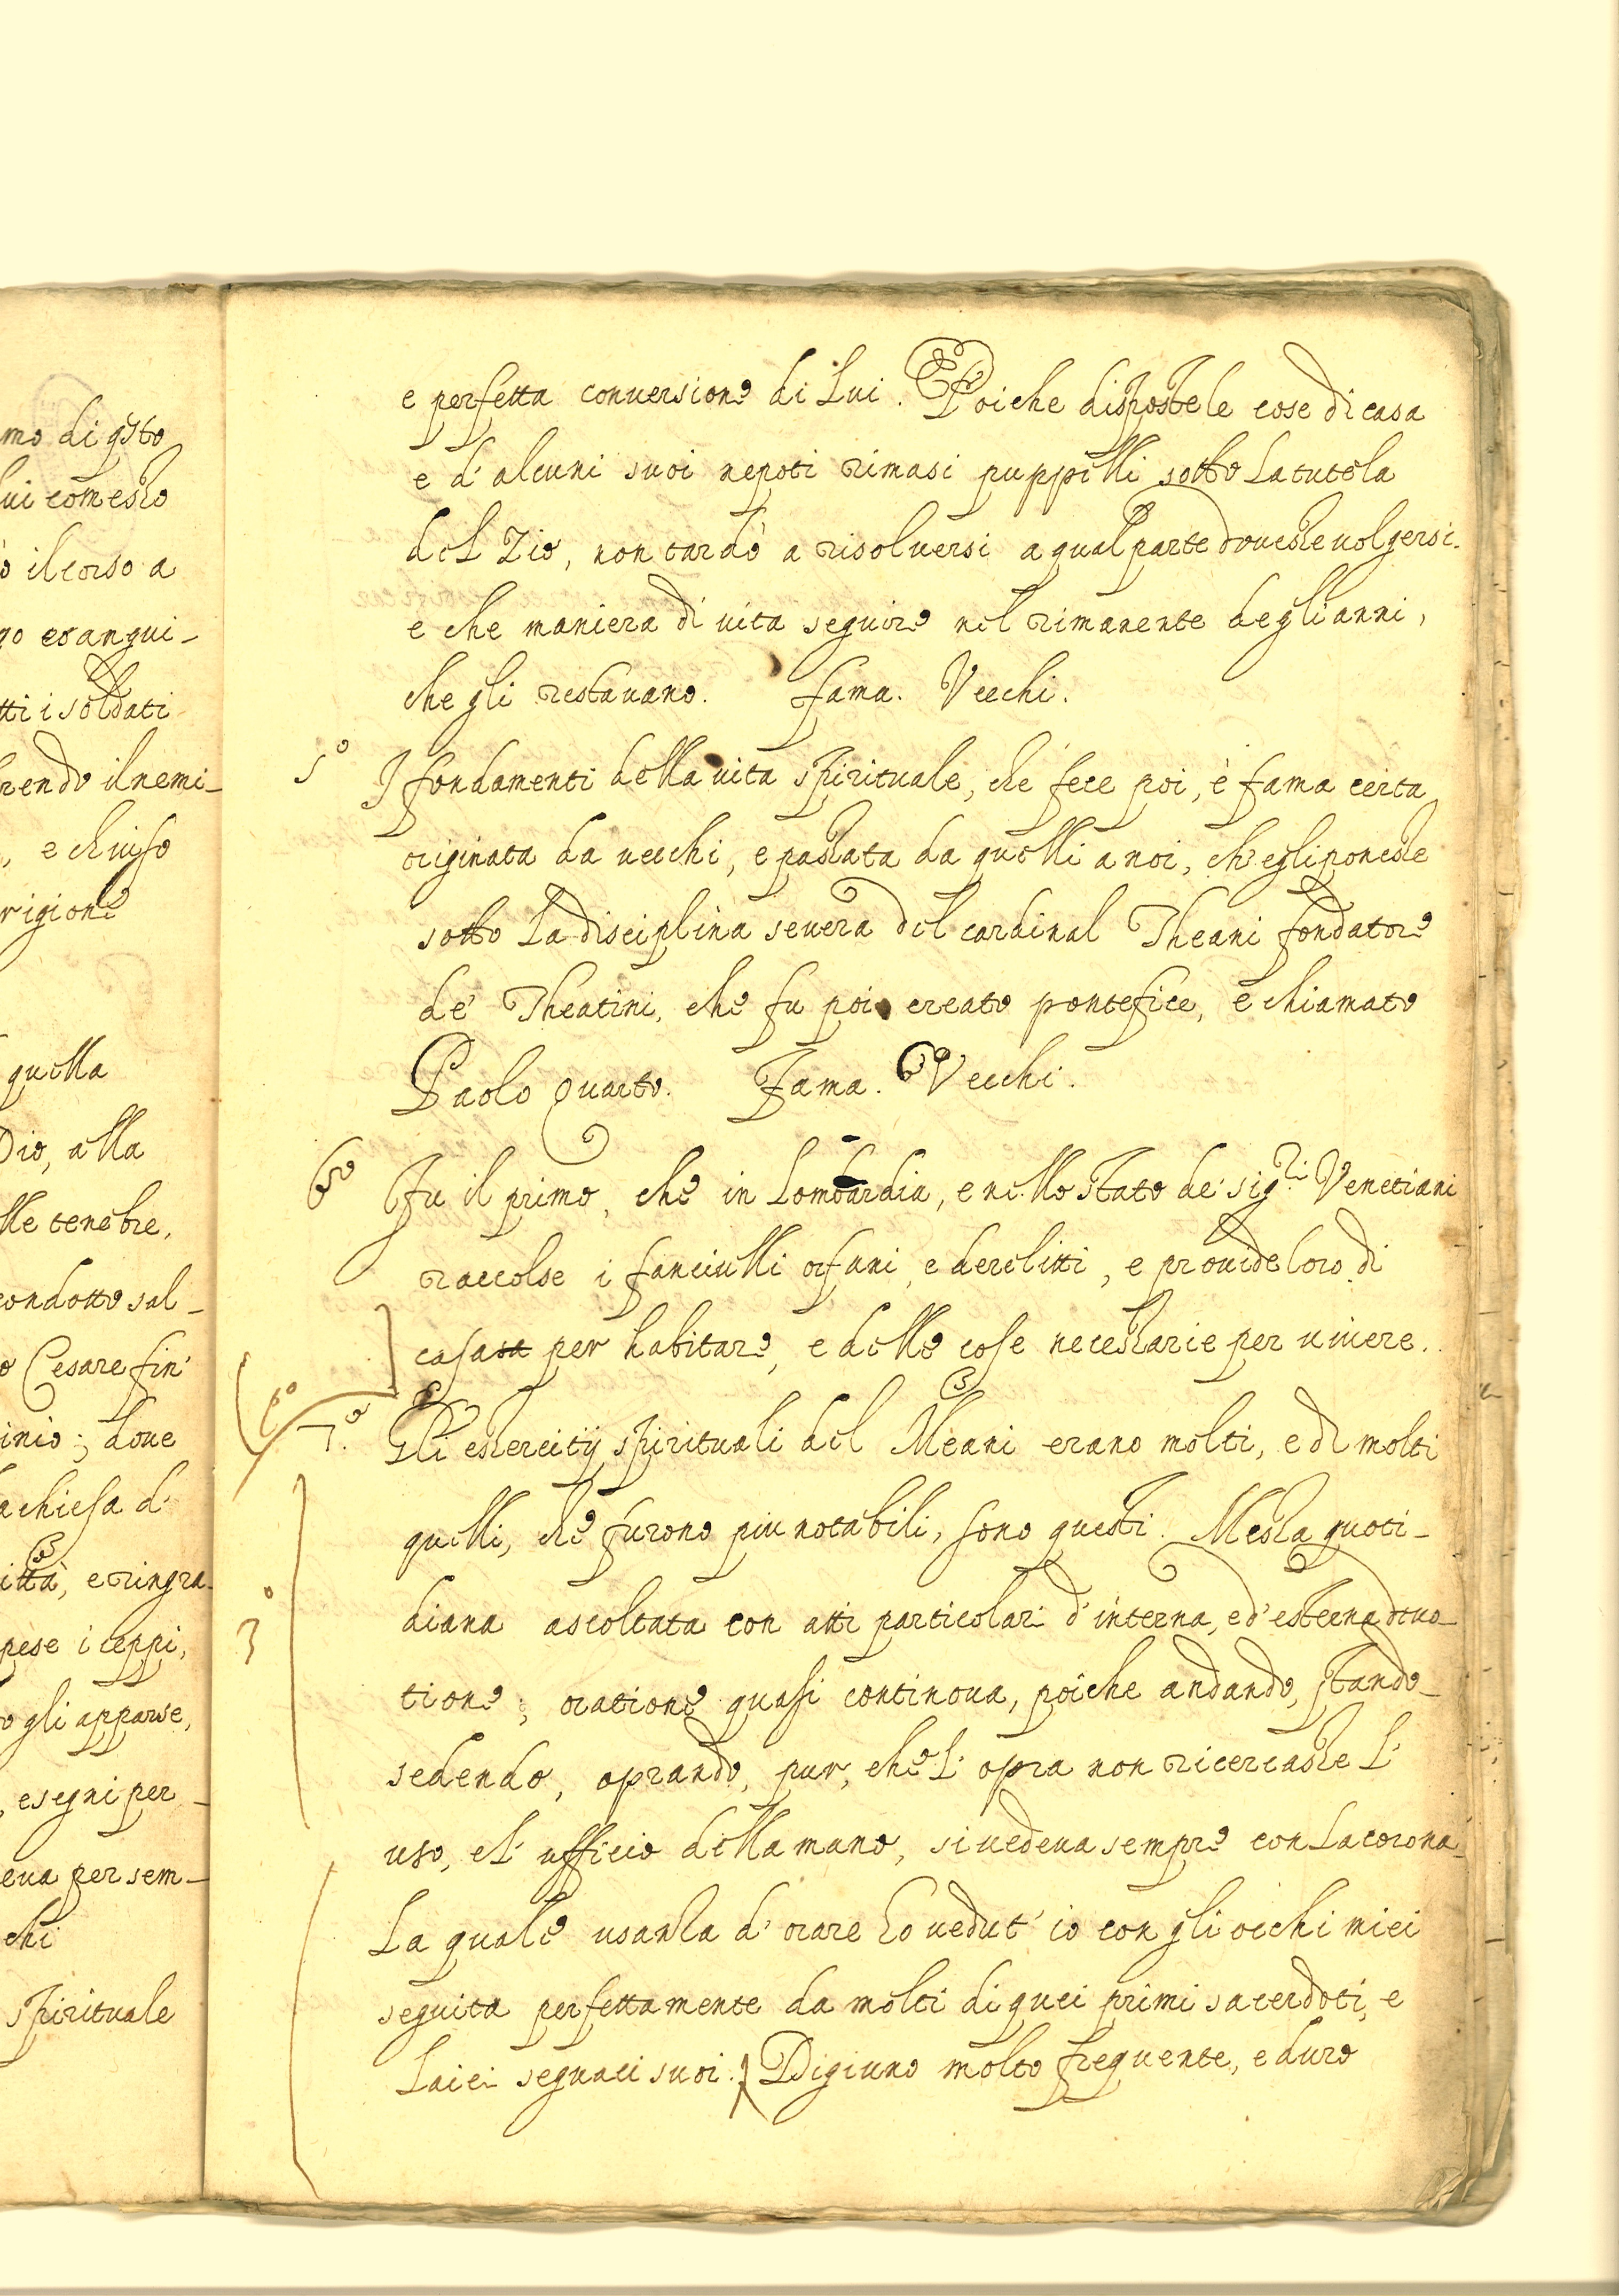 mo di q̃sto
lui comesso
ò il corso a
go esangui-
tti i soldati
rendo il nemi-
, e chiuso
rigione
quella
Dio, alla
lle tenebre,
condotto sal-
o Cesare fin'
inio; doue
a chiesa d'
ittà, e ringra-
pese i ceppi,
o gli apparue,
, e segni per-
eua per sem-
chi
spirituale
e perfetta conuersione di Lui. Poiche disposte le cose di casa
e d'alcuni suoi nepoti rimasi puppilli sotto la tutela
del Zio, non tardò a risoluersi a qual parte douesse uolgersi.
e che maniera di uita seguire nel rimanente degli anni,
che gli restauano. Fama. Vecchi.
5º I fondamenti della uita spirituale, che fece poi, è fama certa
originata da uecchi, e passata da quelli a noi, ch'egli ponesse
sotto la disciplina seuera del cardinal Theani fondatore
de' Theatini, che fu poi creato pontefice, e chiamato
Paolo Quarto. Fama. Vecchi.
6º Fu il primo, che in Lombardia, e nello stato de' sig.ri Venetiani
raccolse i fanciulli orfani, e derelitti, e prouide loro di
casa per habitare, e delle cose necessarie per uiuere.
6º
7.º Gli essercitij spirituali del Meani erano molti, e di molti
quelli, che furono piu notabili, sono questi. Messa quoti-
diana ascoltata con atti particolari d'interna, ed'esterna deuo-
3º
tione; oratione quasi continoua, poiche andando, stando
sedendo, oprando, pur, che l'opra non ricercasse l'
uso, e l'ufficio della mano, si uedeua sempre con la corona
La quale usanza d'orare ho uedut'io con gli occhi miei
seguita perfettamente da molti di quei primi sacerdoti, e
Laici seguaci suoi. Digiuno molto frequente, e duro